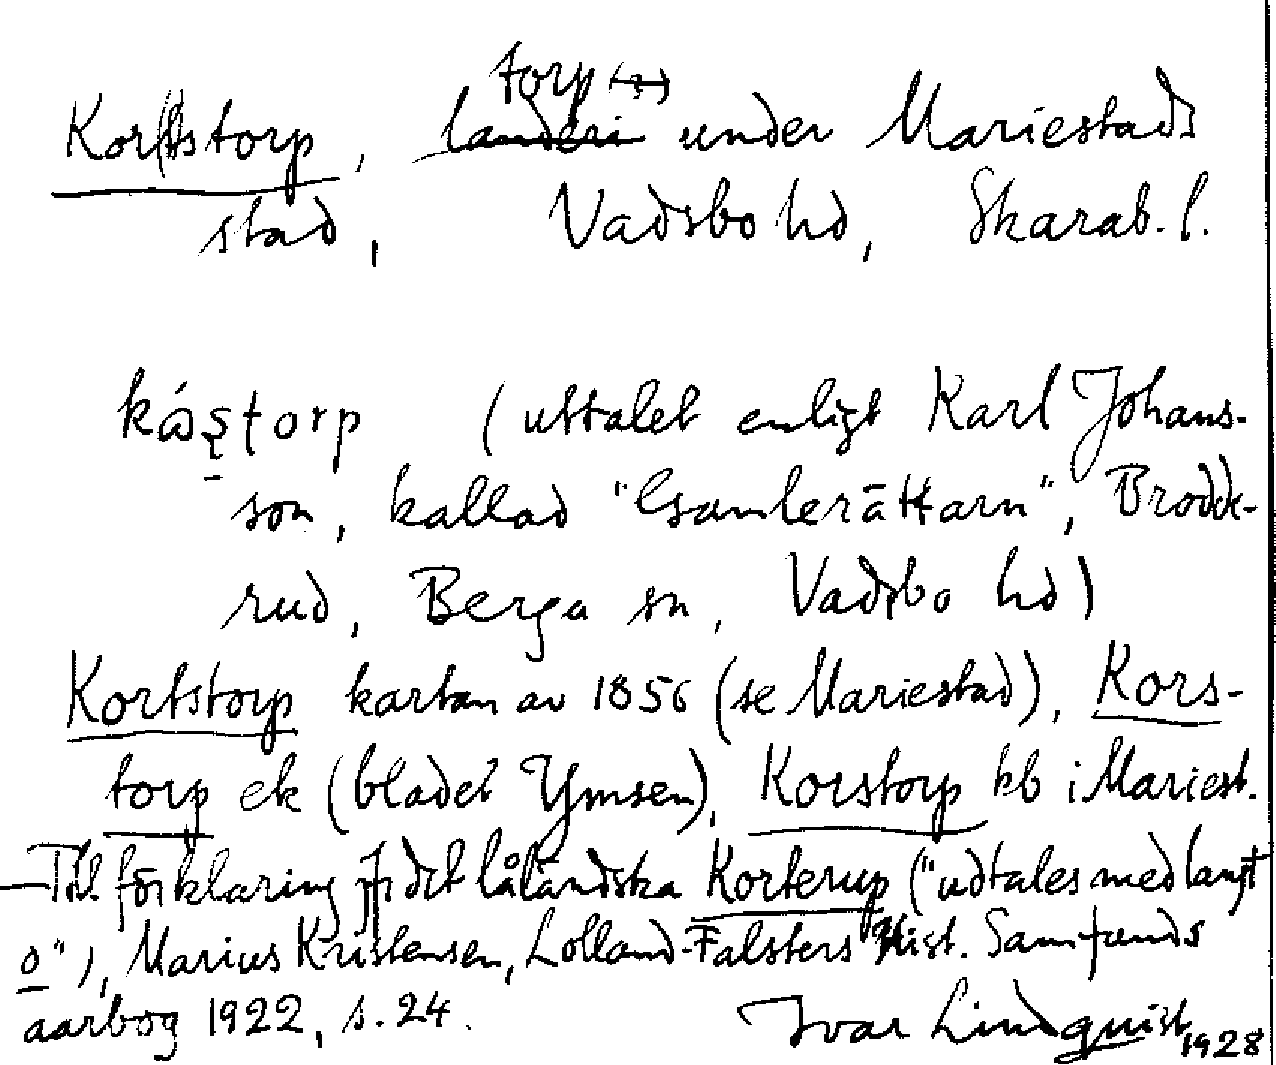 torp (?)
Kor(t)storp, landeri under Mariestads
stad, Vadsbo hd, Skarab. l.
kástorp (uttalet enligt Karl Johans-
son, kallad "Gamlerättarn", Brodde-
rud, Berga sn, Vadsbo hd)
Kortstorp kartan av 1856 (se Mariestad), Kors-
torp ek (bladet Ymsen), Korstorp kb i Mariest.
Till förklaring jfr det låländska Korterup ("udtales med langt
o"), Marius Kristensen, Lolland-Falsters Hist. Samfunds
aarbog 1922, s. 24. Ivar Lindquist 1928